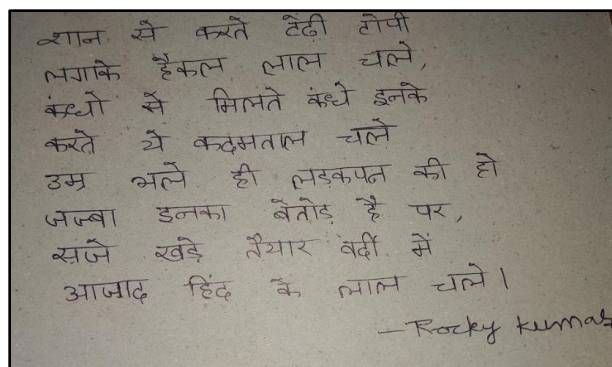 शान से करते टेढ़ी टोपी
लगाके हैकल लाल चले,
कंधो से मिलते कंधे इनके
करते ये कदमताल चले
उम्र भले ही लड़कपन की हो
जज्बा इनका बेतोड़ है पर,
सजे खड़े तैयार वर्दी में
आजाद हिंद के लाल चले।
-Rocky Kumar